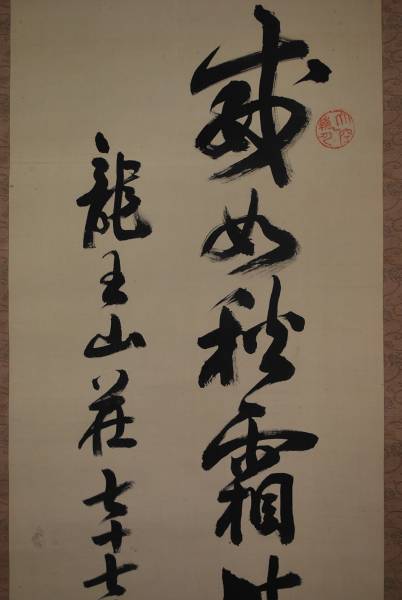 威如秋霜
龍王山荘七十七